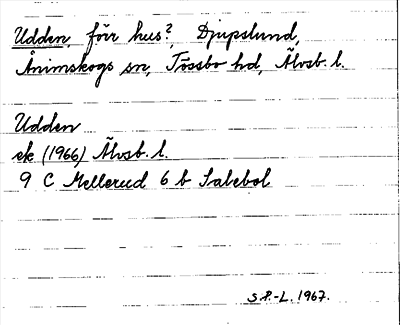 Udden, förr hus?, Djupslund,
Ånimskogs sn, Tössbo hd, Älvsb. l.
Udden
ek (1966) Älvsb. l.
9 C Mellerud 6 b Salebol
S.P.-L. 1967.